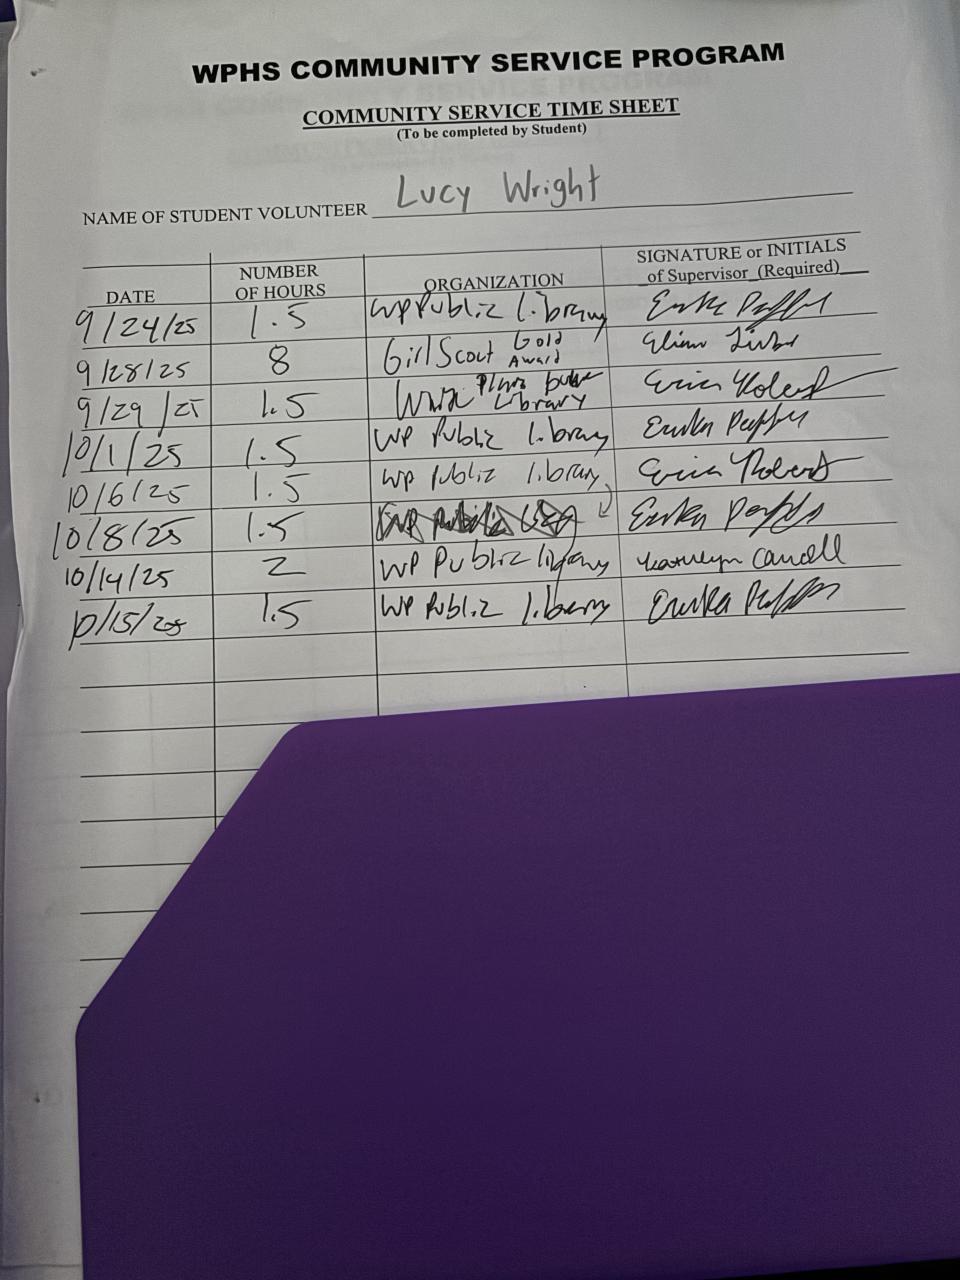 WPHS COMMUNITY SERVICE PROGRAM
COMMUNITY SERVICE TIME SHEET
(To be completed by Student)
NAME OF STUDENT VOLUNTEER Lucy Wright
DATE NUMBER OF HOURS ORGANIZATION SIGNATURE or INITIALS of Supervisor (Required)
9/24/25 1.5 WP Public Library Erika
9/28/25 8 Girl Scout Gold Award
9/29/25 1.5 Plains Library
10/1/25 1.5 WP Public Library Erika
10/6/25 1.5 WP Public library Erica Robert
10/8/25 1.5 Erika
10/14/25 2 WP Public library
10/15/25 1.5 WP Public library Erika